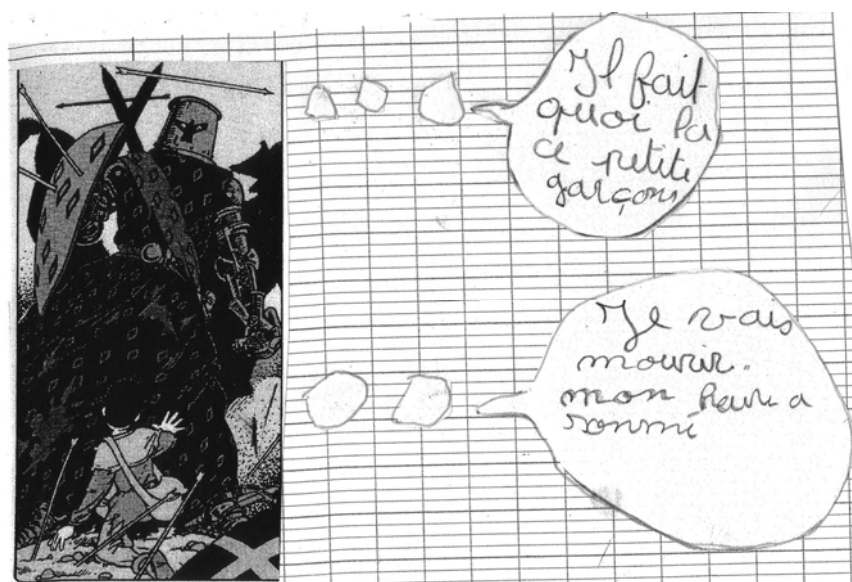 Il fait
quoi la
ce petite
garçons
Je vais
mourir.
mon heure a
sonné